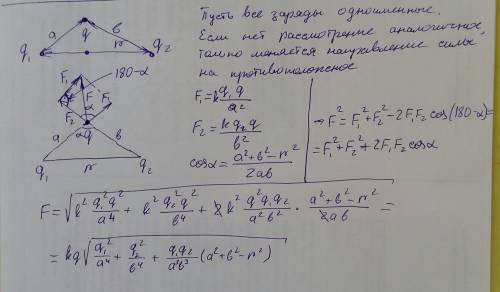 Пусть все заряды одноименные.
Если нет рассмотрение аналогичное,
только меняется направление силы
на противоположное
a q b
q₁ r q₂
F₁ 180-α
F
F₂ α F₁
a q b
q₁ r q₂
F₁ = k q₁ q / a²
F₂ = k q₂ q / b²
cosα = (a² + b² - r²) / 2ab
→ F² = F₁² + F₂² - 2F₁F₂ cos(180-α) =
= F₁² + F₂² + 2F₁F₂ cosα
F = √(k² q₁²q²/a⁴ + k² q₂²q²/b⁴ + 2k² q²q₁q₂/a²b² · (a² + b² - r²)/2ab) =
= kq√(q₁²/a⁴ + q₂²/b⁴ + q₁q₂/a³b³ (a² + b² - r²))